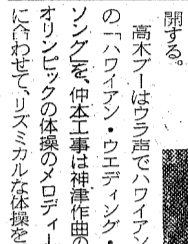 開する。
高木ブーはウラ声でハワイアン
の「ハワイアン・ウエディング・
ソング」を、仲本工事は神津作曲の
オリンピックの体操のメロディー
に合わせて、リズミカルな体操を